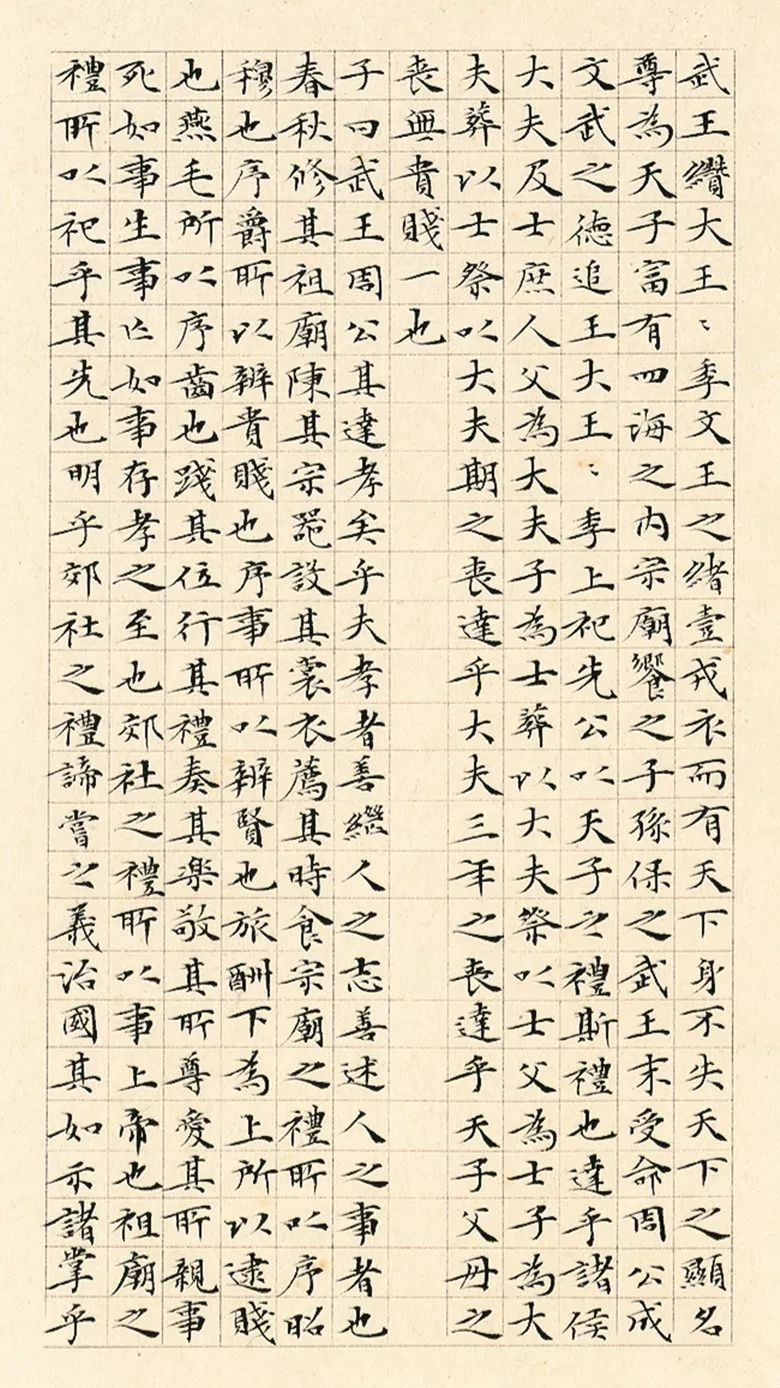 武王纘大王〻季文王之緒壹戎衣而有天下身不失天下之顯名
尊為天子富有四海之内宗廟饗之子孫保之武王末受命周公成
文武之德追王大王〻季上祀先公以天子之禮斯禮也達乎諸侯
大夫及士庶人父為大夫子為士葬以大夫祭以士父為士子為大
夫葬以士祭以大夫期之喪達乎大夫三年之喪達乎天子父母之
喪無貴賤一也
子曰武王周公其達孝矣乎夫孝者善繼人之志善述人之事者也
春秋修其祖廟陳其宗器設其裳衣薦其時食宗廟之禮所以序昭
穆也序爵所以辨貴賤也序事所以辨賢也旅酬下為上所以逮賤
也燕毛所以序齒也踐其位行其禮奏其楽敬其所尊愛其所親事
死如事生事亡如事存孝之至也郊社之禮所以事上帝也祖廟之
禮所以祀乎其先也明乎郊社之禮諦嘗之義治國其如示諸掌乎